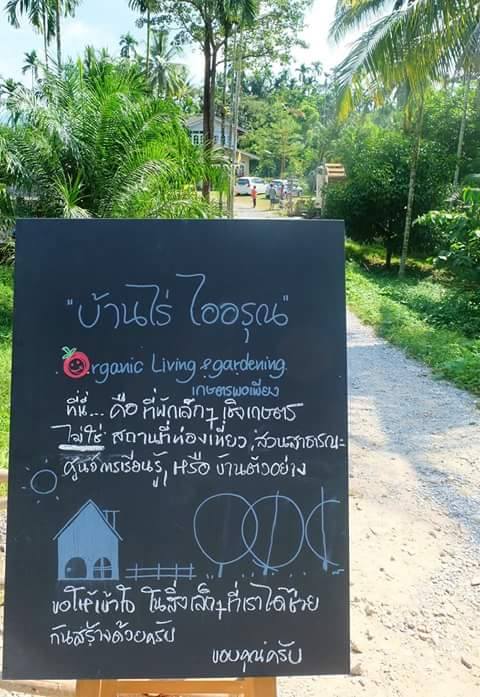 "บ้านไร่ ไออรุณ"
Organic Living & gardening.
เกษตรพอเพียง
ที่นี่... คือ ที่พักเล็กๆ เชิงเกษตร
ไม่ใช่ สถานที่ท่องเที่ยว, สวนสาธารณะ
ศูนย์การเรียนรู้, หรือ บ้านตัวอย่าง
ขอให้เข้าใจ ในสิ่งเล็กๆ ที่เราได้ช่วย
กันสร้างด้วยครับ
ขอบคุณครับ